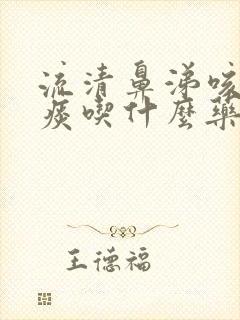 流清鼻涕咳
痰喫什麼藥
王德福